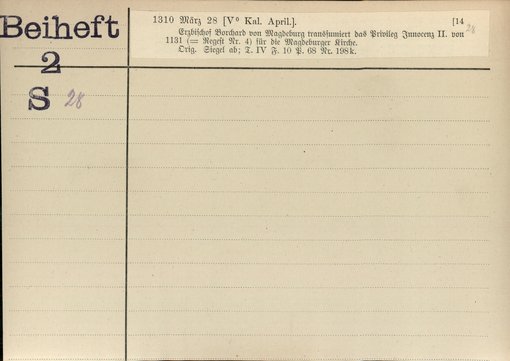 Beiheft
2
S 28
1310 März 28 [V° Kal. April.]. [14
28
Erzbischof Borchard von Magdeburg transsumiert das Privileg Innocenz II. von
1131 (= Regest Nr. 4) für die Magdeburger Kirche.
Orig. Siegel ab; T. IV F. 10 P. 68 Nr. 198k.